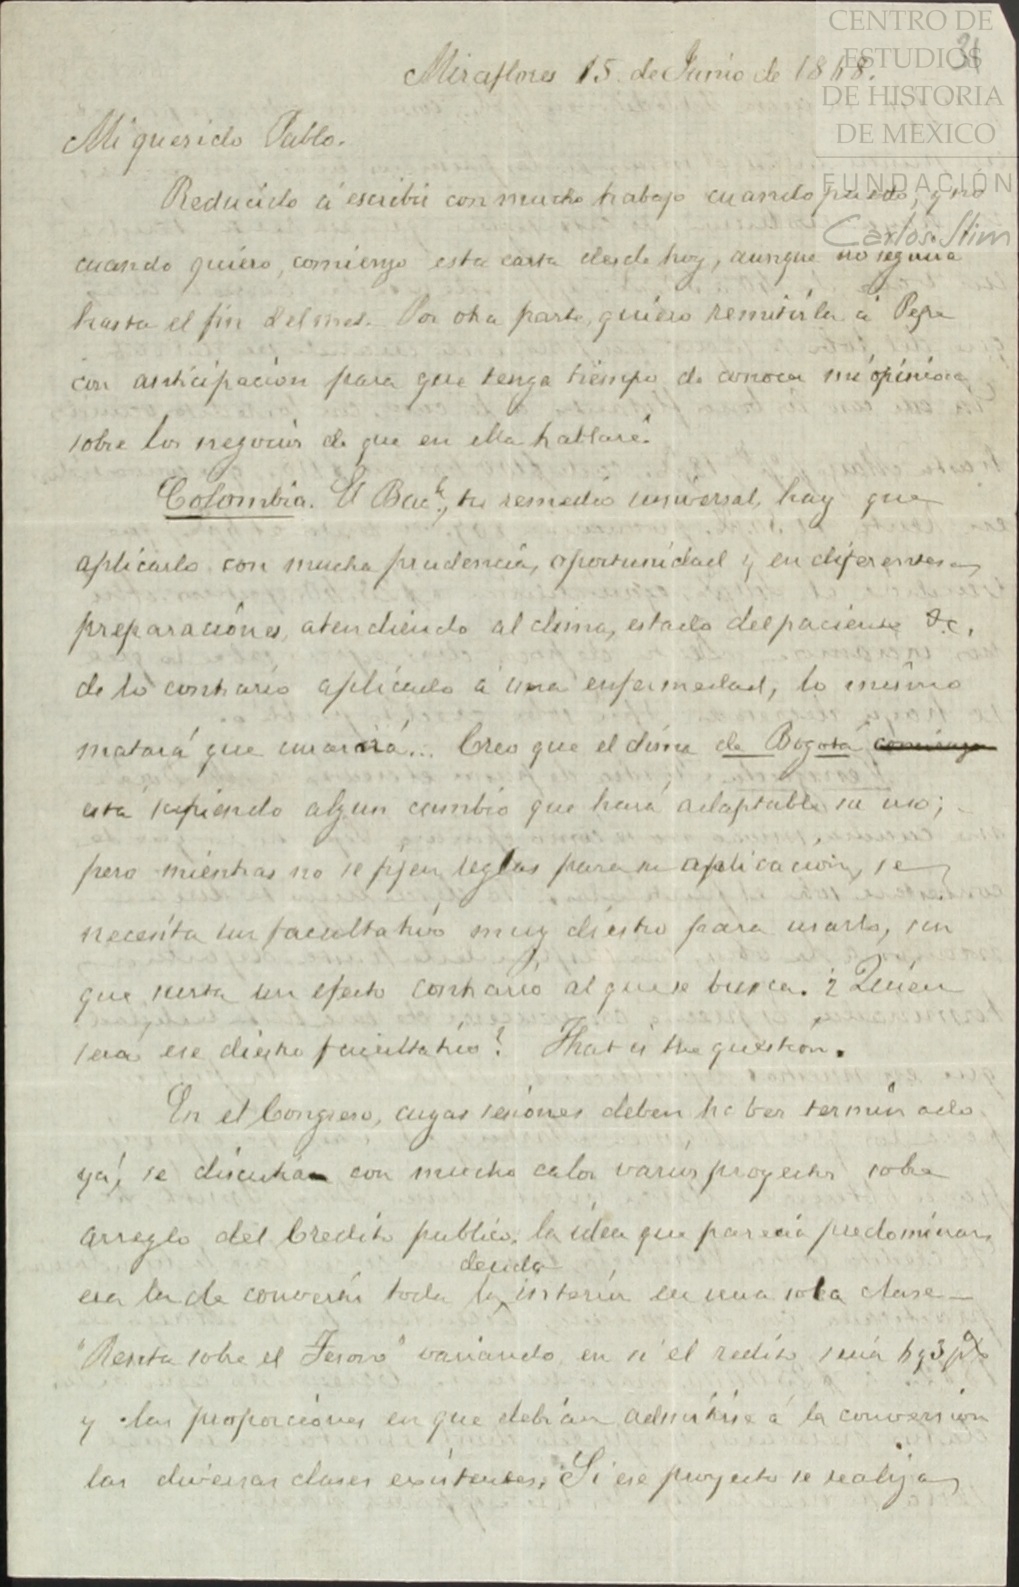 CENTRO DE
ESTUDIOS
DE HISTORIA
DE MEXICO
FUNDACIÓN
Carlos Slim
31
Miraflores 15 de Junio de 1868.
Mi querido Pablo.
Reducido á escribir con mucho trabajo cuando puedo, y no
cuando quiero, comienzo esta carta desde hoy, aunque no seguirá
hasta el fin del mes. Por otra parte, quiero remitirla á Pepe
con anticipacion para que tenga tiempo de conocer mi opinion
sobre los negocios de que en ella hablaré.
Colombia. El Banc., tu remedio universal, hay que
aplicarlo con mucha prudencia, oportunidad y en diferentes
preparaciones, atendiendo al clima, estado del paciente &c.
de lo contrario aplicado á una enfermedad, lo mismo
matará que curará... Creo que el clima de Bogotá
está sufriendo algun cambio que hará adaptable su uso;
pero mientras no se fijen reglas para su aplicacion, se
necesita un facultativo muy diestro para usarlo, sin
que surta un efecto contrario al que se busca. ¿Quien
será ese diestro facultativo? That is the question.
En el Congreso, cuyas sesiones deben haber terminado
yá, se discutian con mucho calor varios proyectos sobre
arreglo del Credito publico. la idea que parecia predominar
deuda
era la de convertir toda la interior en una sola clase
"Renta sobre el Tesoro" variando en si el redito seria y 3 p%
y las proporciones en que debian admitirse á la conversion
las diversas clases existentes. Si ese proyecto se realiza